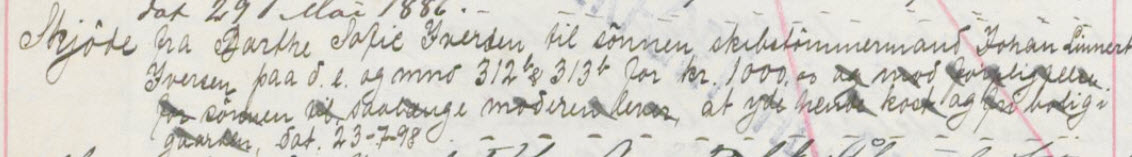 dat 29 Mai 1886.
Skjöde fra Barthe Sofie Iversen til sönnen skibstömmermand Johan Linnert
Iversen paa d. e. og mnd 312 b & 313 b for kr. 1000.00 og mod forpligtelse
for sönnen til, saalænge moderen lever, at yde hende kost og fri bolig i
gaarden, dat. 23-7-98.